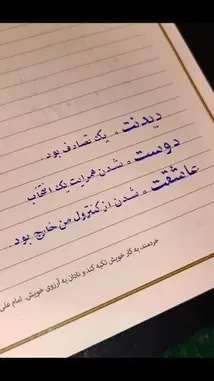 دیدنت. یک تصادف بود.
دوست. شدن همرایت یک انتخاب
عاشقت. شدن از کنترول من خارج بود.
خردمند، به کار خویش تکیه کند و نادان به آرزوی خویش. امام علی